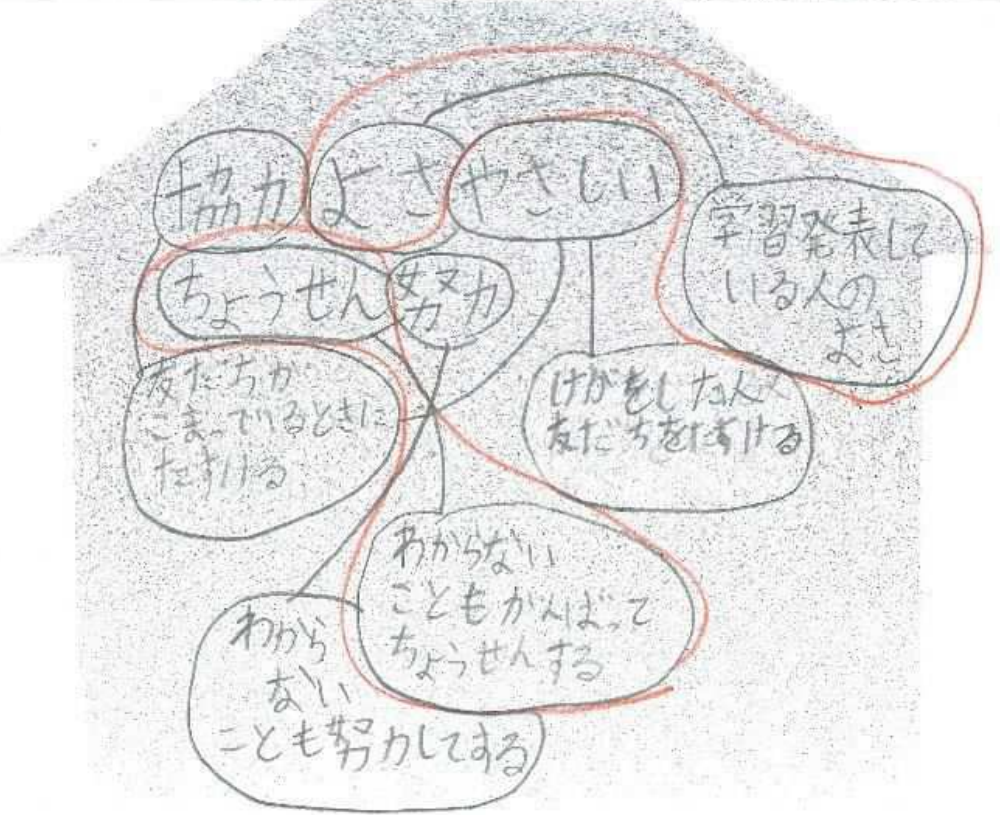 協力
よさ
やさしい
学習発表して
いる人の
よさ
ちょうせん
努力
友だちが
こまっているときに
たすける
けがをした人や
友だちをたすける
わからない
こともがんばって
ちょうせんする
わから
ない
ことも努力してする